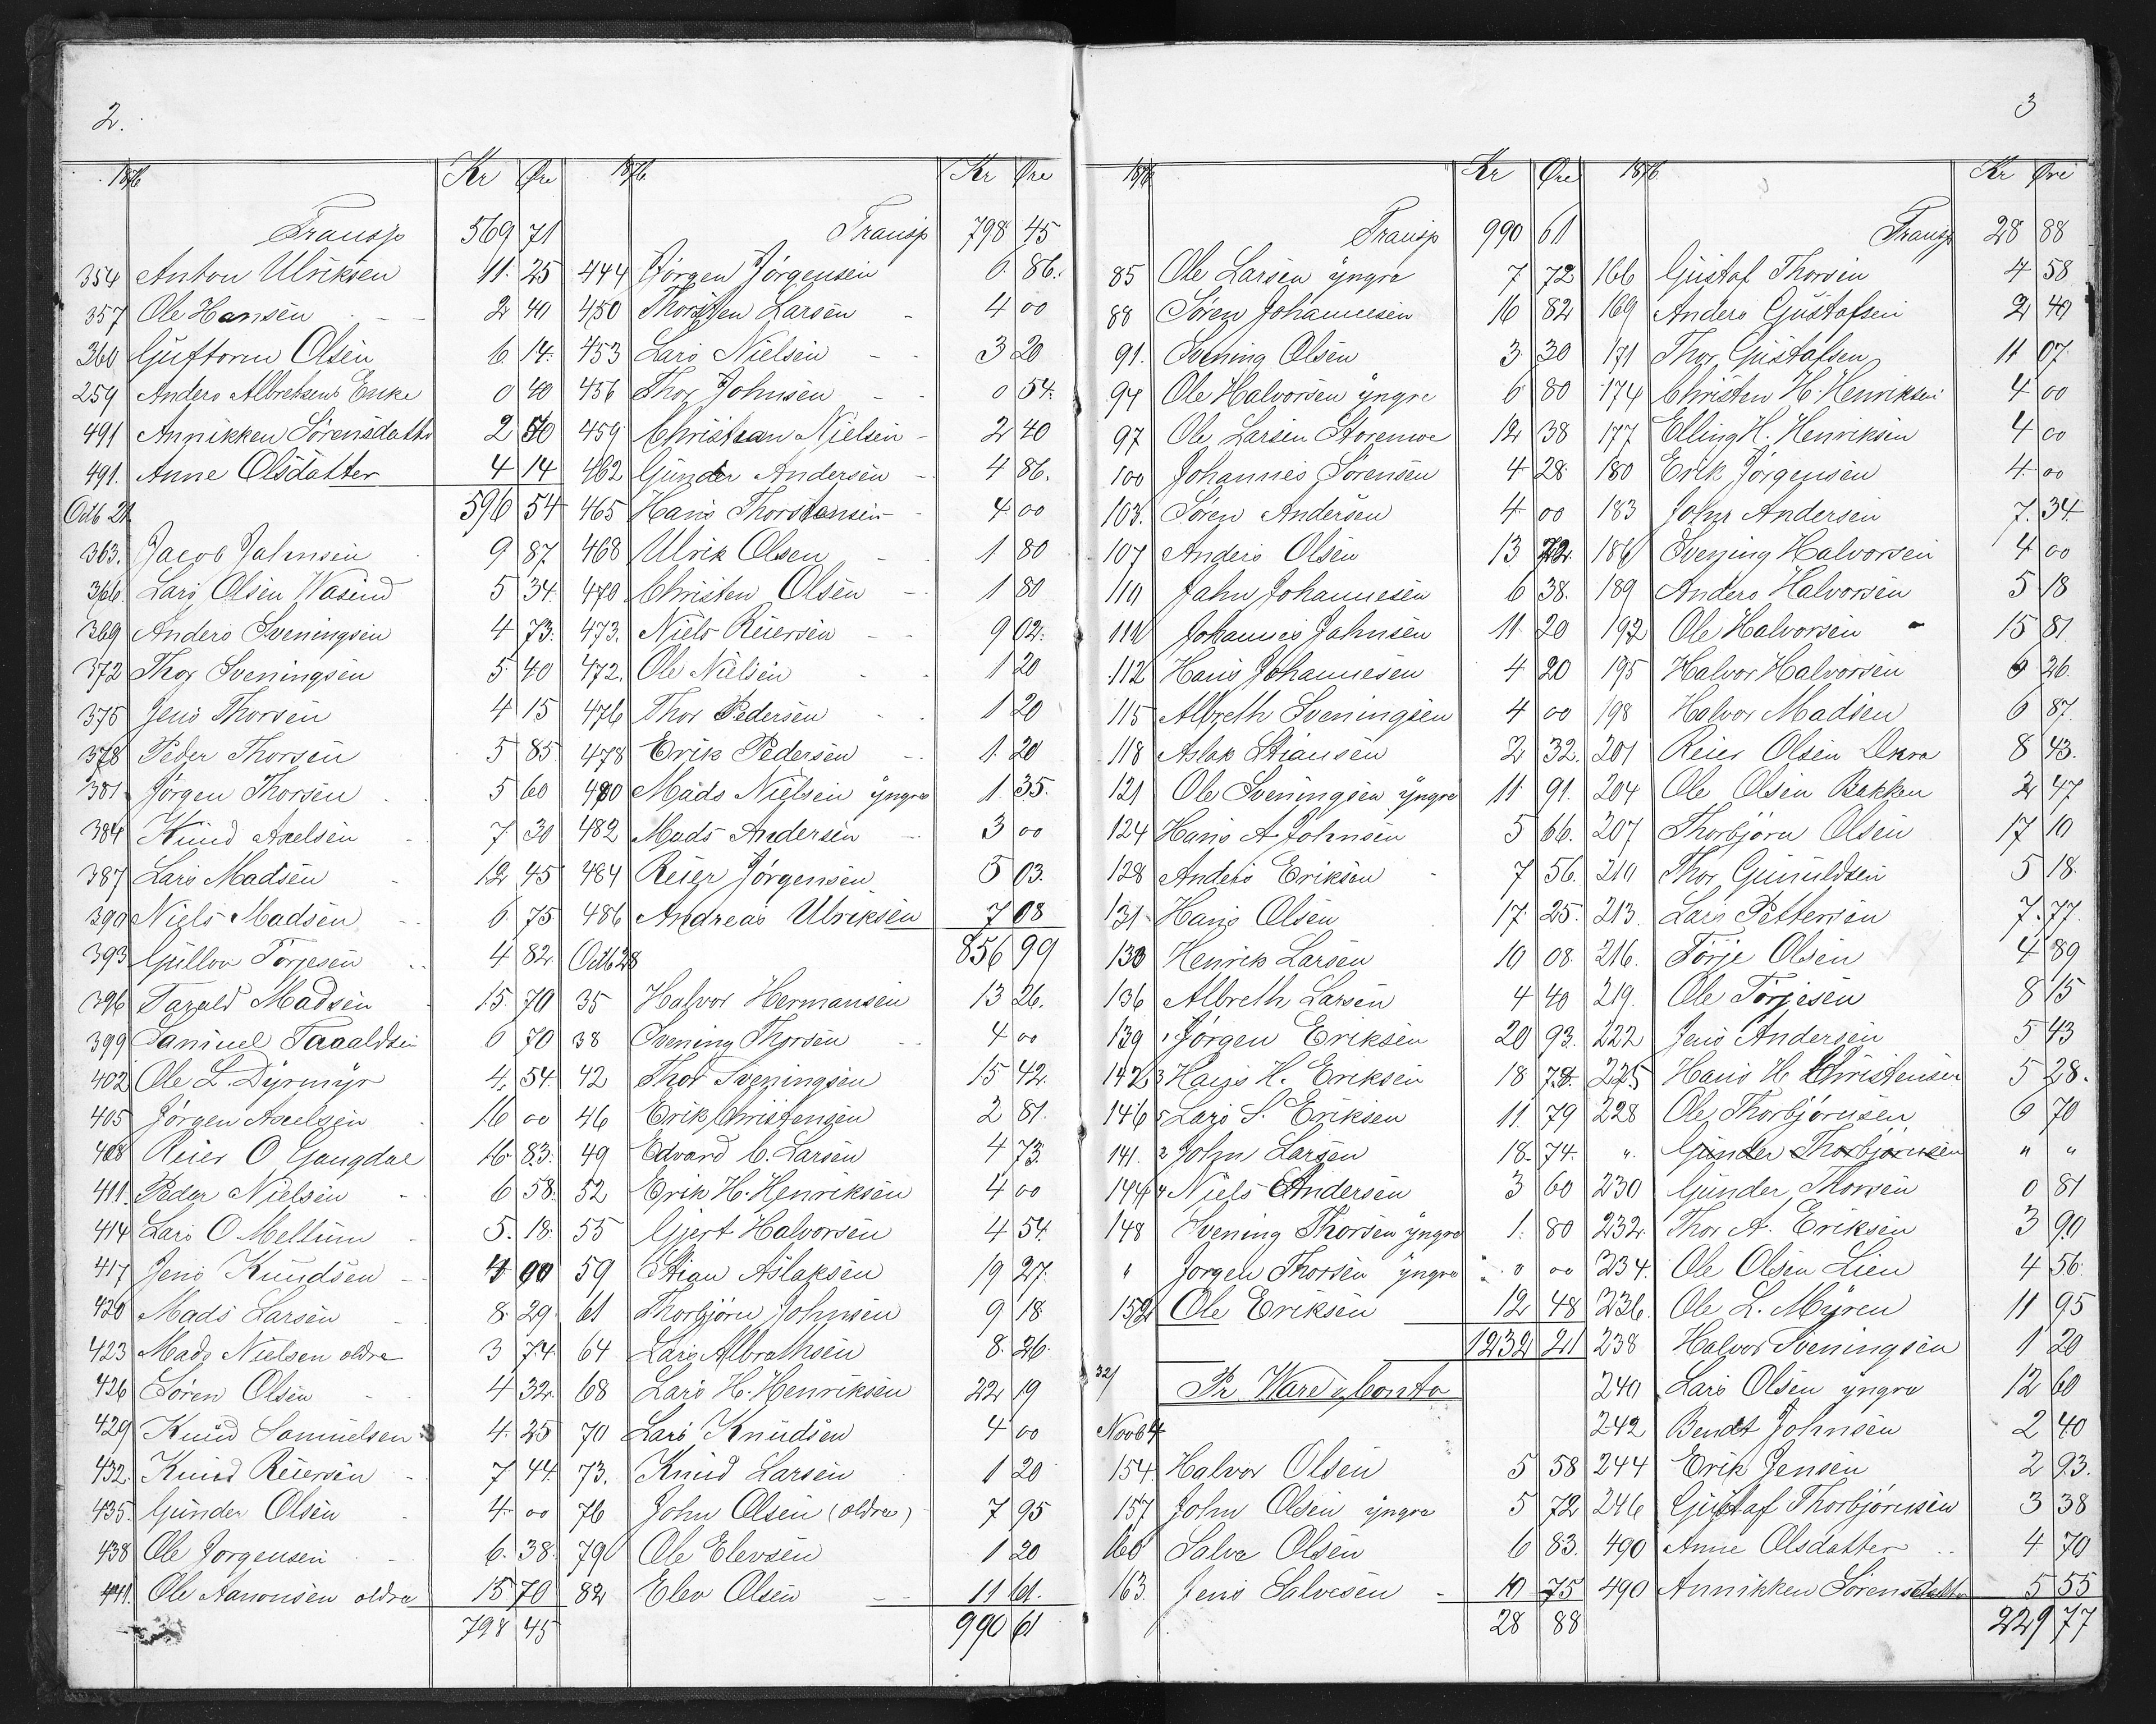 2.
1876 Kr Øre
Transp 569 71
354 Anton Ulriksen 11. 25
357 Ole Hansen 2 40
360 Guttorm Olsen 6 14.
259 Anders Albretsens Enke 0 40
491 Annikken Sørensdatter 2 50
491. Anne Olsdatter 4 14
596 54
Octb 21
363. Jacob Jahnsen 9 87.
366. Lars Olsen Wasend 5 34.
369 Anders Sveningsen 4 73.
372 Thor Sveningsen 5 40
375 Jens Thorsen 4 15
378 Peder Thorsen 5 85
381 Jörgen Thorsen 5 60
384 Knud Axelsen 7 30
387 Lars Madsen 12 45
390 Niels Madsen 6 75
393 Gullov Törjesen 4 82
396 Tarald Madsen 15 70
399 Samuel Taraldsen 6 70
402 Ole L Dyrmyr 4 54
405 Jörgen Axelsen 16 00
408 Reier O Gangdal 16 83.
411. Peder Nielsen 6 58
414 Lars O Mellum 5. 18.
417 Jens Knudsen 4 00
420 Mads Larsen 8. 29.
423 Mads Nielsen oldre 3 74
426 Sören Olsen 4 32
429 Knud Samuelsen 4. 25
432. Knud Reiersen 7 44
435. Gunder Olsen 4 00
438 Ole Jorgensen 6. 38
441. Ole Aanonsen oldre 15 70
798 45
1876 Kr Øre
Transp 798 45
444 Jörgen Jörgensen 6 86.
450 Thorsten Larsen 4 00
453 Lars Nielsen 3 20
456 Thor Johnsen 0 54.
459 Christian Nielsen 2 40
462 Gunder Andersen 4 86.
465 Hans Thorstensen 4 00
468 Ulrik Olsen 1 80
470 Christen Olsen 1 80
473. Niels Reiersen 9 02.
472. Ole Nielsen 1 20
476 Thor Pedersen 1 20
478 Erik Pedersen 1. 20
480 Mads Nielsen yngre 1 35.
482 Mads Andersen 3 00
484 Reier Jörgensen 5 03.
486 Andreas Ulriksen 7 08
856 99
Octb 28
35 Halvor Hermansen 13 26.
38 Svening Thorsen 4 00
42 Thor Sveningsen 15 42.
46 Erik Christensen 2 81.
49 Edvard C. Larsen 4 73.
52 Erik H. Henriksen 4 00
55 Gjert Halvorsen 4 54.
59 Stian Aslaksen 19 27.
61 Thorbjörn Johnsen 9 18
64 Lars Albrethsen 8. 26.
68 Lars H. Henriksen 22 19
70 Lars Knudsen 4 00
73. Knud Larsen 1 20
76 John Olsen (oldre) 7 95
79 Ole Elevsen 1 20
82 Elev Olsen 11 61.
990 61
3
1876 Kr Øre
Transp 990 61
85 Ole Larsen yngre 7 72
88 Sören Johannesen 16 82
91. Svening Olsen 3 30
94 Ole Halvorsen yngre 6 80
97 Ole Larsen Storemoe 12 38
100 Johannes Sörensen 4 28
103. Sören Andersen 4 00
107 Anders Olsen 13 72.
110 Jahn Johannesen 6 38.
111 Johannes Jahnsen 11 20
112 Hans Johannesen 4 20
115 Albreth Sveningsen 4 00
118 Aslak Stiansen 2 32.
121 Ole Sveningsen yngre 11 91.
124 Hans A Johnsen 5 66.
128 Anders Eriksen 7 56.
131. Hans Olsen 17 25.
133 Henrik Larsen 10 08
136 Albreth Larsen 4 40
139 1 Jörgen Eriksen 20 93.
142 3 Hans H. Eriksen 18 78.
146 5 Lars S. Eriksen 11 79
141. 2 John Larsen 18. 74.
144 4 Niels Andersen 3 60
148 Svening Thorsen yngre 1. 80
" Jorgen Thorsen yngre " 00
152 Ole Eriksen 12 48
1232 21
32/ Pr Waredy Conto
Novb 4
154 Halvor Olsen 5 58
157 John Olsen yngre 5 72
160 Salve Olsen 6 83.
163. Jens Salvesen 10 75
28 88
1876 Kr Øre
Transp 28 88
166 Gustaf Thorsen 4 58
169 Anders Gustafsen 2 40
171 Thor Gustafsen 11 07.
174 Christen H. Henriksen 4 00
177 Elling H. Henriksen 4 00
180 Erik Jörgensen 4 00
183 John Andersen 7. 34.
186 Svening Halvorsen 4 00
189 Anders Halvorsen 5 18
192 Ole Halvorsen 15 81.
195 Halvor Halvorsen 6 26.
198 Halvor Madsen 6 87.
201 Reier Olsen 8 43.
204 Ole Olsen Bakken 2 47
207 Thorbjörn Olsen 17 10
210 Thor Gunuldsen 5 18.
213. Lars Pettersen 7. 77.
216. Törje Olsen 4 89
219. Ole Törjesen 8 15
222 Jens Andersen 5 43
225 Hans H. Christensen 5 28.
228 Ole Thorbjörnsen 6 70
". Gunder Thorbjörnsen " "
230 Gunder Thorsen 0 81
232 Thor A. Eriksen 3 90
234. Ole Olsen Lien 4 56.
236. Ole L. Myren 11 95
238 Halvor Sveningsen 1 20
240 Lars Olsen yngre 12 60
242 Bendt Johnsen 2 40
244 Erik Jensen 2 93.
246 Gustaf Thorbjörnsen 3 38
490 Anne Olsdatter 4 70
490 Annikken Sörensdatter 5 55
229 77